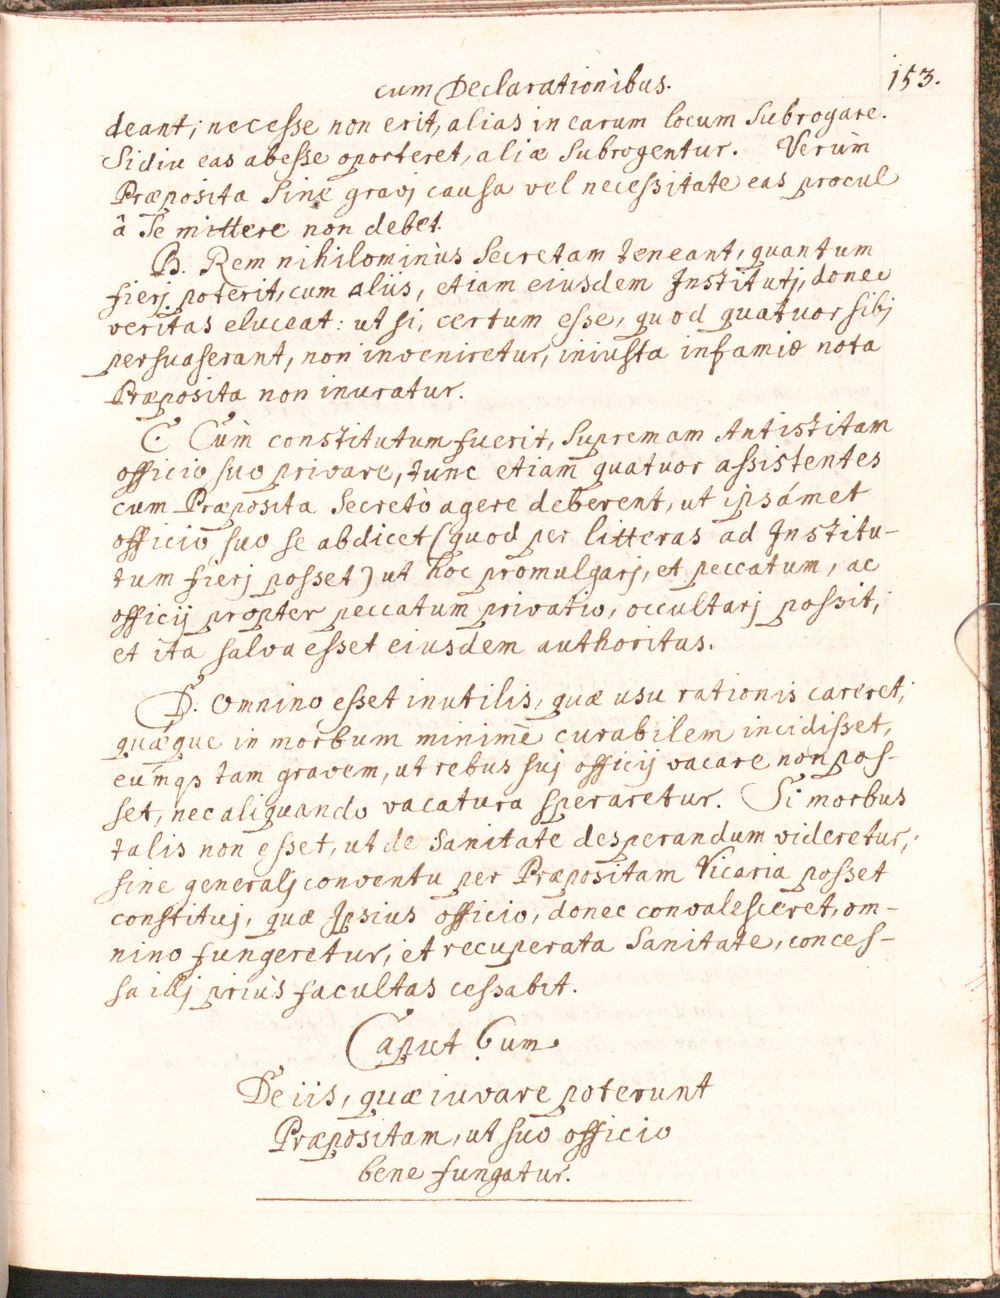 cum Declarationibus.
153.
deant; necesse non erit, alias in earum locum subrogare.
Si diu eas abesse oporteret, aliæ subrogentur. Verùm
Præposita sine gravj causa vel necessitate eas procul
â se mittere non debet.
B. Rem nihilominùs secretam teneant, quantum
fierj poterit, cum aliis, etiam eiusdem Institutj, donec
veritas eluceat: ut si, certum esse, quod quatuor sibj
persuaserant, non inveniretur, iniusta infamiæ nota
Præposita non inuratur.
C. Cùm constitutum fuerit, Supremam Antistitam
officio suo privare, tunc etiam quatuor assistentes
cum Præposita secretò agere deberent, ut ipsámet
officio suo se abdicet (quod per litteras ad Institu-
tum fierj posset) ut hoc promulgarj, et peccatum, ac
officij propter peccatum privatio, occultarj possit,
et ita salva esset eiusdem authoritas.
D. Omnino esset inutilis, quæ usu rationis careret,
quæque in morbum minimè curabilem incidisset,
eumqȝ tam gravem, ut rebus suj officij vacare non pos-
set, nec aliquando vacatura speraretur. Si morbus
talis non esset, ut de Sanitate desperandum videretur,
sine generalj conventu per Præpositam Vicaria posset
constituj, quæ Ipsius officio, donec convalesceret, om-
nino fungeretur, et recuperata Sanitate, conces-
sa illj priùs facultas cessabit.
Caput 6um.
De iis, quæ iuvare poterunt
Præpositam, ut suo officio
bene fungatur.